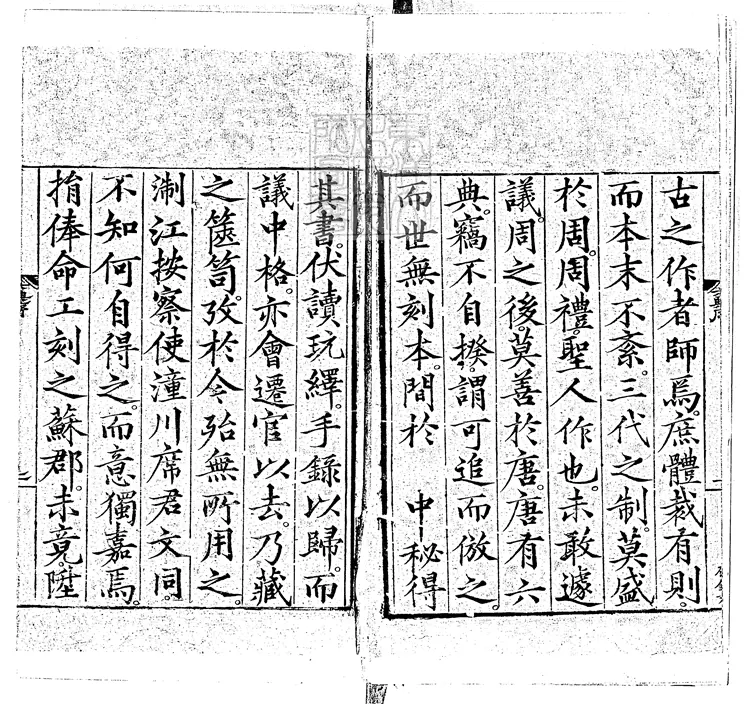 古之作者師焉。庶體裁有則。
而本末不紊。三代之制。莫盛
於周。周禮。聖人作也。未敢遽
議。周之後。莫善於唐。唐有六
典。竊不自揆。謂可追而倣之。
而世無刻本。間於　中祕得
其書。伏讀玩繹。手錄以歸。而
議中格。亦會遷官以去。乃藏
之篋笥。攷於今殆無所用之。
淛江按察使潼川席君文同。
不知何自得之。而意獨嘉焉。
捐俸命工刻之蘇郡。未竟。陞